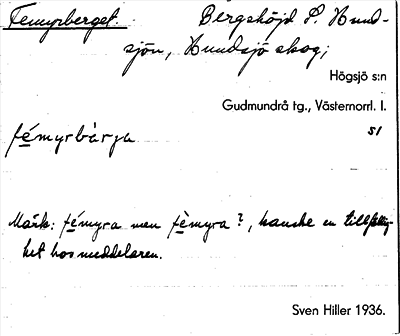 Femyrberget. Bergshöjd S. Hund-
sjön, Hundsjö skog;
Högsjö s:n
Gudmundrå tg., Västernorrl. l.
51
fémyrbàrja
Märk: fémyra men fèmyra?, kanske en tillfällig-
het hos meddelaren.
Sven Hiller 1936.